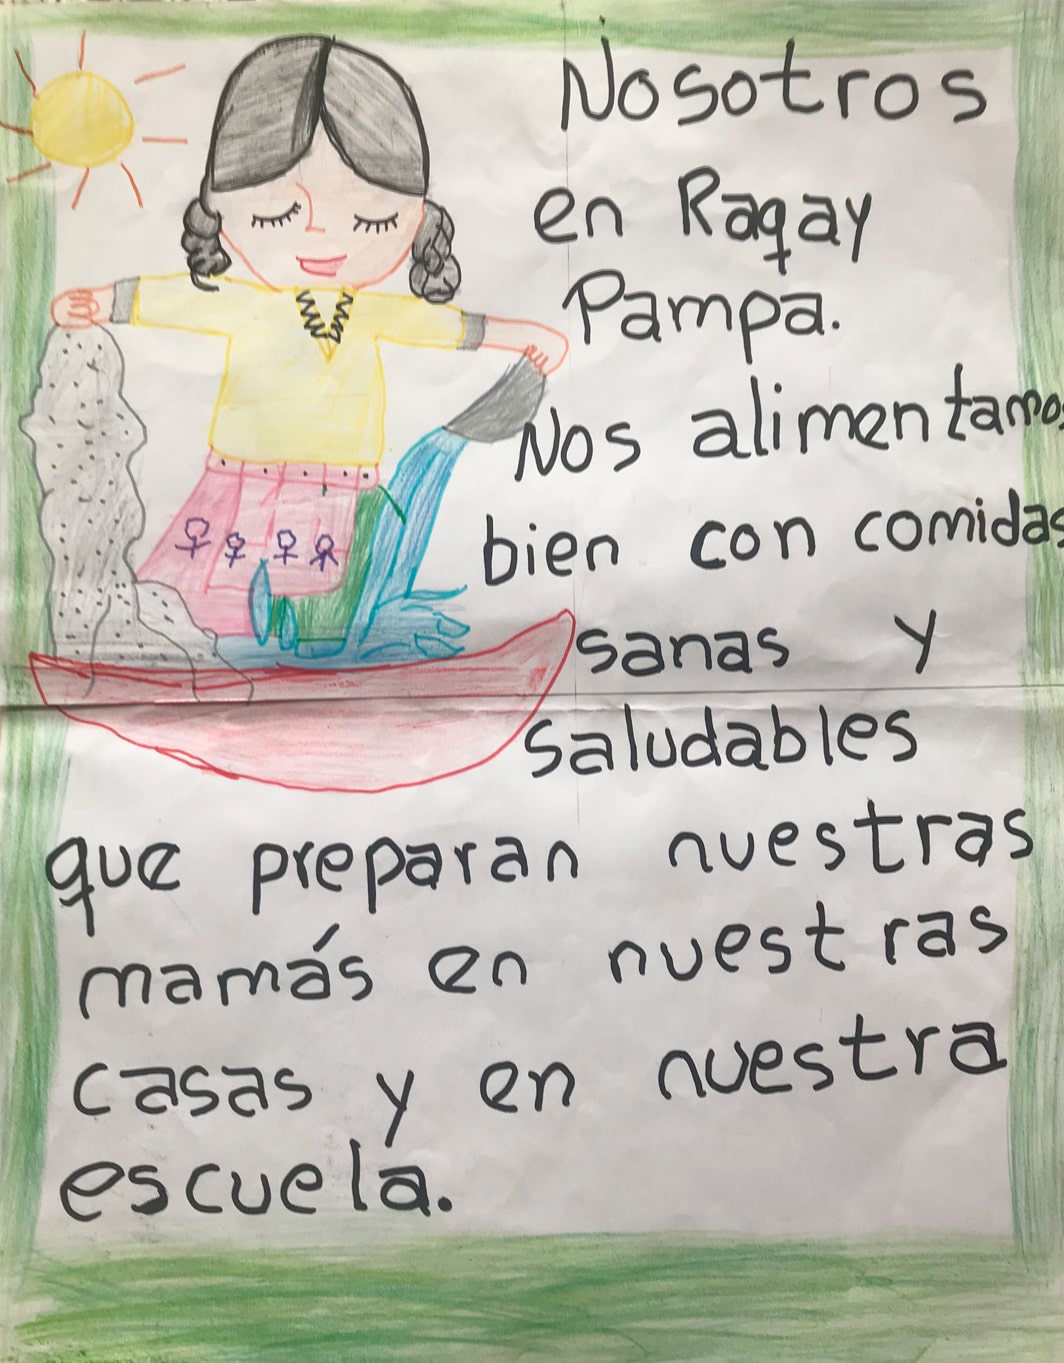 Nosotros
en Raqay
Pampa.
Nos alimentamos
bien con comidas
sanas y
saludables
que preparan nuestras
mamás en nuestras
casas y en nuestra
escuela.